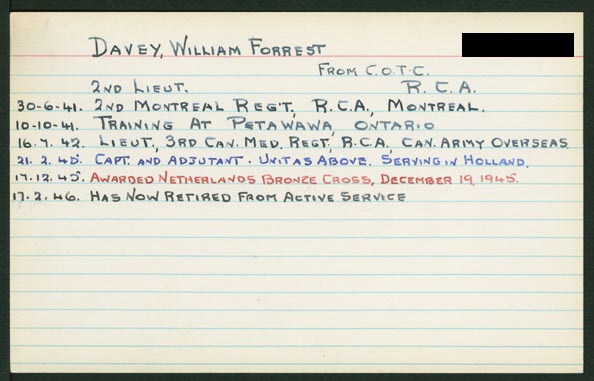 DAVEY, WILLIAM FORREST
FROM C.O.T.C.
2ND LIEUT. R.C.A.
30-6-41. 2ND MONTREAL REG'T, R.C.A., MONTREAL.
10-10-41. TRAINING AT PETAWAWA, ONTARIO
16.7.42. LIEUT, 3RD CAN. MED. REGT, R.C.A, CAN. ARMY OVERSEAS
21.2.45. CAPT. AND ADJUTANT. UNIT AS ABOVE. SERVING IN HOLLAND.
17.12.45. AWARDED NETHERLANDS BRONZE CROSS, DECEMBER 19, 1945.
17.2.46. HAS NOW RETIRED FROM ACTIVE SERVICE